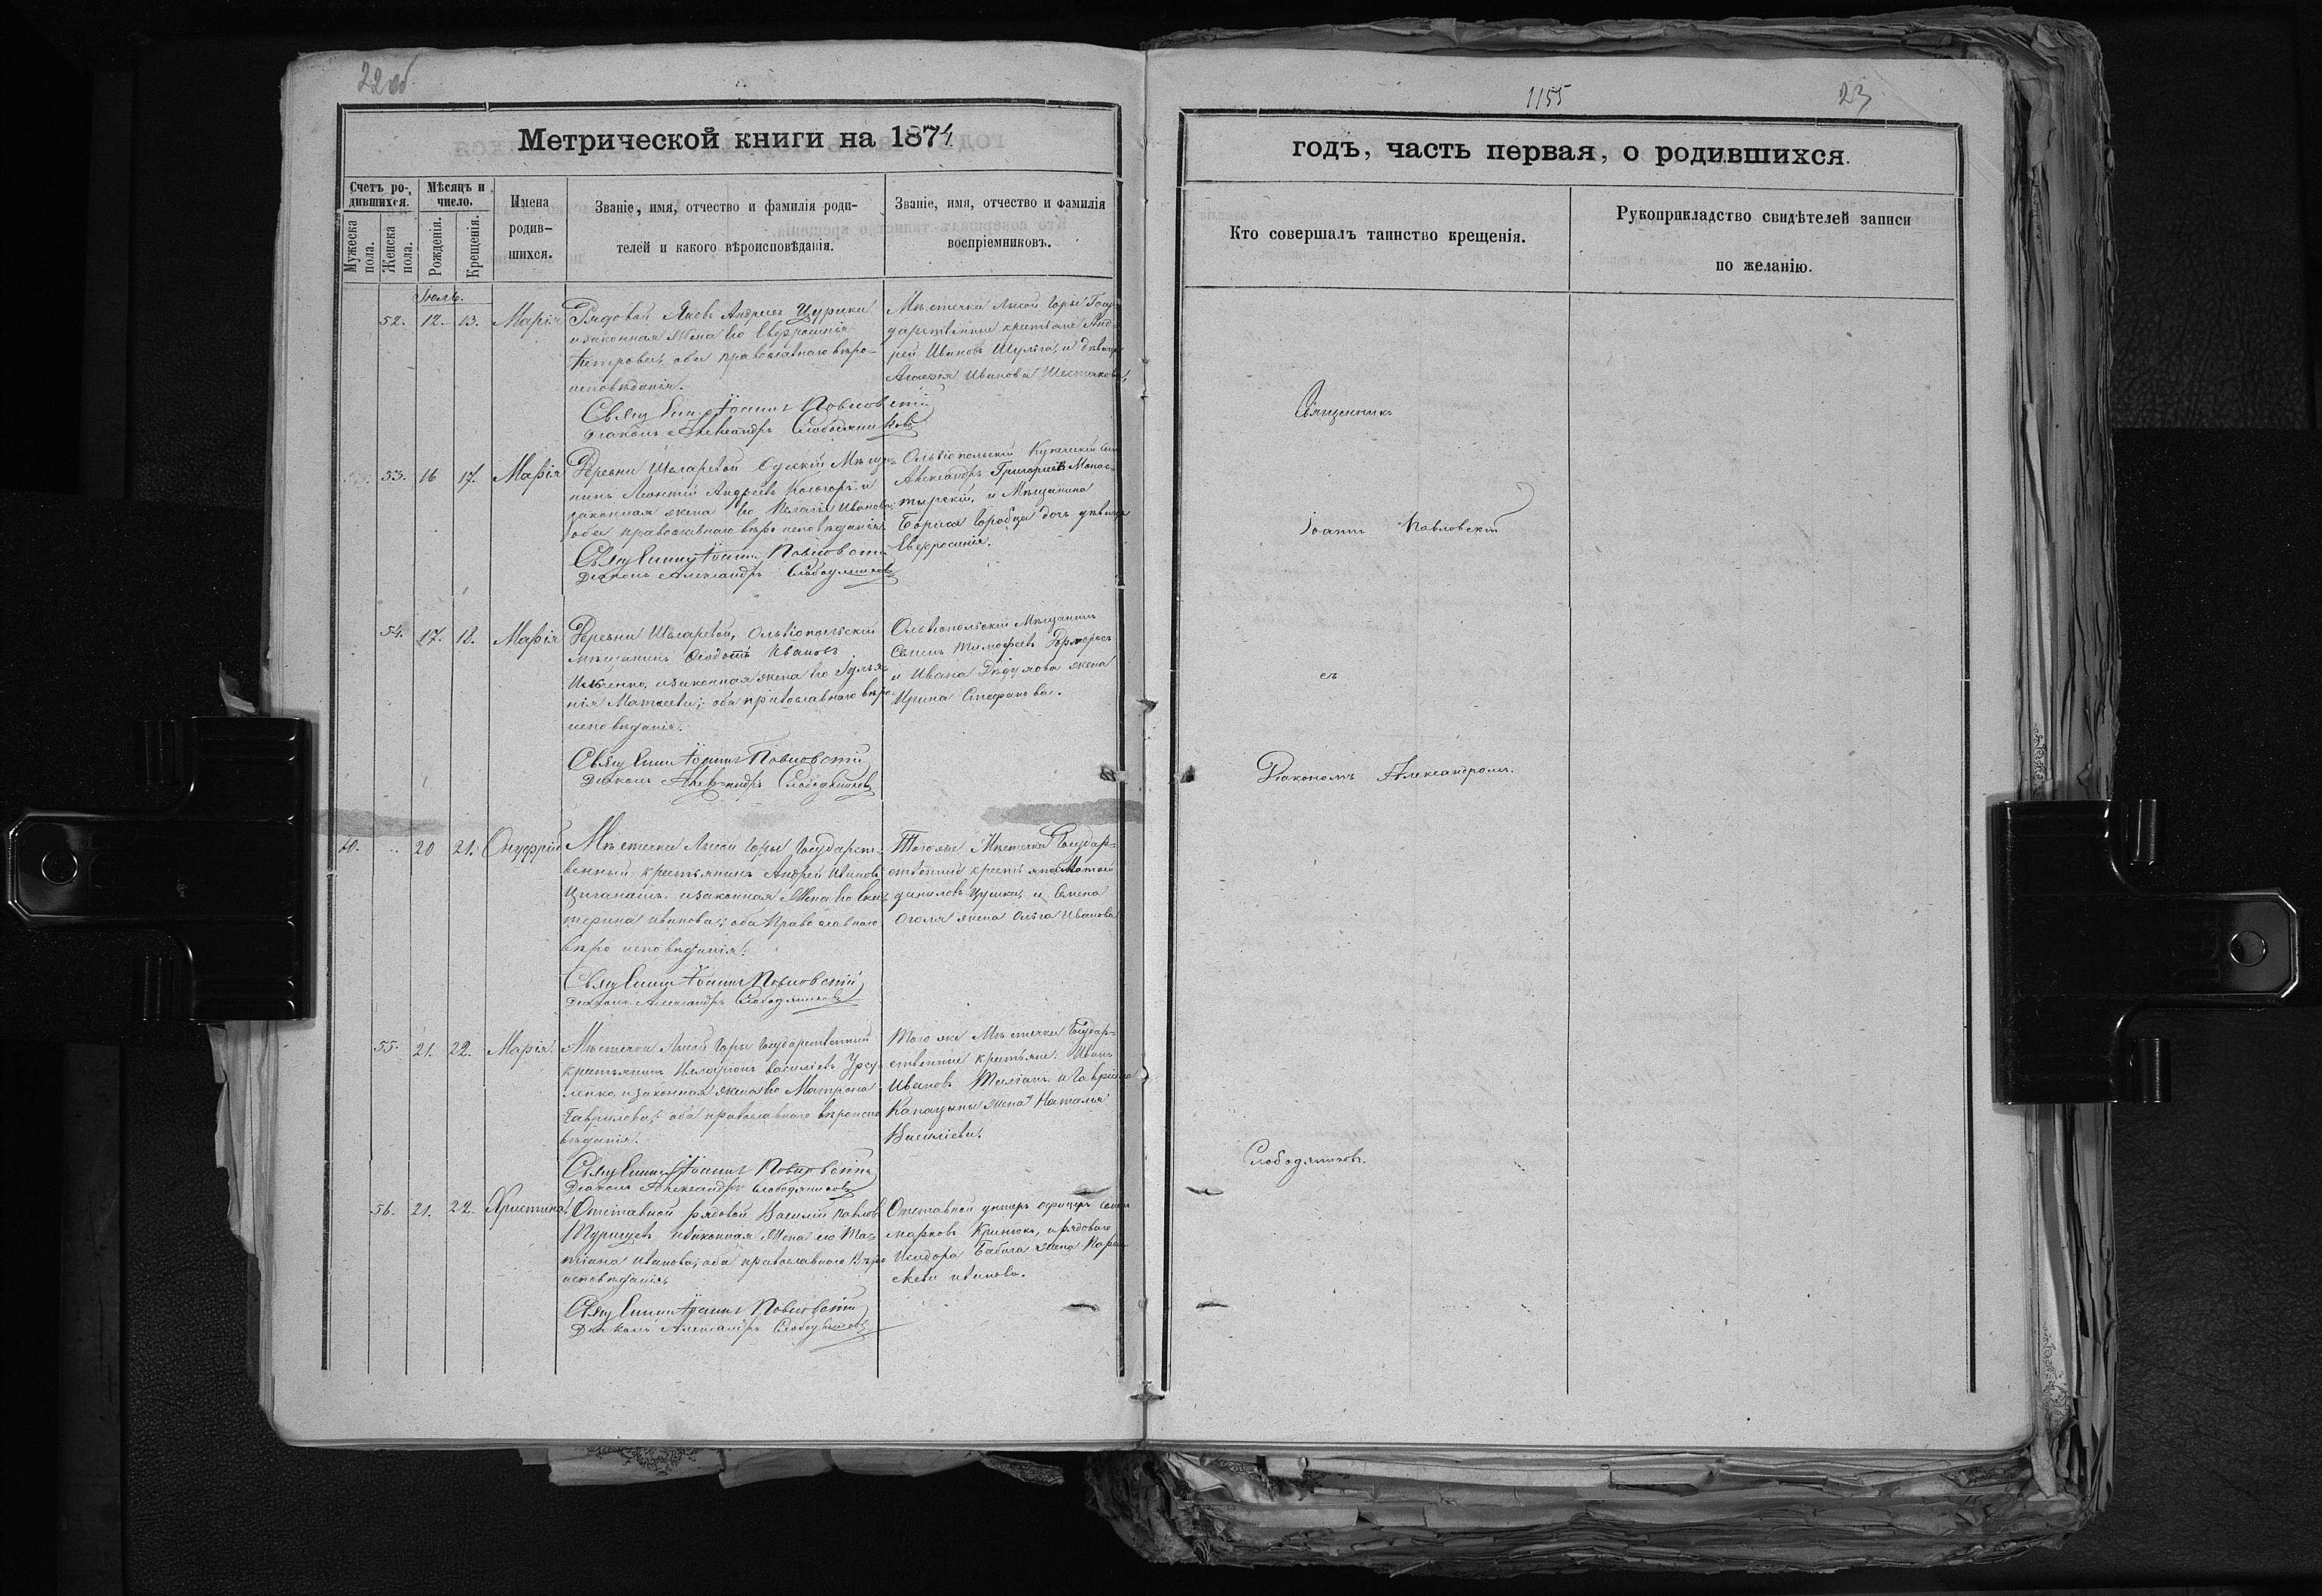 22об.
Метрической книги на 1874
Счетъ ро-
дившихся.
Мужеска
пола.
Женска
пола.
Мѣсяцъ и
число.
Рожденія.
Крещенія.
Имена
родив-
шихся.
Званіе, имя, отчество и фамилія роди-
телей и какого вѣроисповѣданія.
Званіе, имя, отчество и фамилія
воспріемниковъ.
Іюль.
52. 12. 13. Марія
Рядовой Яковъ Андреевъ Цурика
и законная жена его Евфросинія
Петрова, оба православнаго вѣро-
исповѣданія.
Іоаннъ Павловскій
Діаконъ Александръ Слободяниковъ
Мѣстечка Лысой Горы Госу-
дарственные крестьяне Анд-
рей Ивановъ Шульга, и дѣвица
Иванова
53. 16 17. Марія
Деревни Одесскій Мѣща-
нинъ Леонтій Андреевъ и
законная жена его Пелагія Иванова;
оба православнаго вѣроисповѣданія.
Іоаннъ Павловскій
Діаконъ Александръ Слободяниковъ
Ольвіопольскій Купеческій сынъ
Александръ Григоріевъ Монас-
тырскій, и Мѣщанина
Бориса Горобца дочь дѣвица
Евфросинія.
54. 17. 18. Марія
Деревни Ольвіопольскій
мѣщанинъ Ѳеодотъ Ивановъ
и законная жена его Гулья-
нія Матѳеева; оба православнаго вѣро-
исповѣданія.
Іоаннъ Павловскій
Діаконъ Александръ Слободяниковъ
Ольвіопольскій Мѣщанинъ
Семенъ Тимофеевъ
и Ивана Дядулова жена
Ирина Стефанова.
60. .. 20 21. Онуфрій
Мѣстечка Лысой Горы Государст-
венный крестьянинъ Андрей Ивановъ
Циганашъ, и законная жена его Ека-
терина Иванова; оба Православнаго
вѣроисповѣданія.
Іоаннъ Павловскій
Діаконъ Александръ Слободяниковъ
Того же Мѣстечка Государ-
ственный крестьянинъ
Даниловъ Цурика, и Семена
Оголя жена Ольга Иванова
55. 21. 22. Марія.
Мѣстечка Лысой Горы Государственный
крестьянинъ Илларіонъ Василіевъ Урсу-
ленко, и законная жена его Матрона
Гаврилова; оба православнаго вѣроиспо-
вѣданія.
Іоаннъ Павловскій
Діаконъ Александръ Слободяниковъ
Того же Мѣстечка Государ-
ственные крестьяне: Иванъ
Ивановъ и Гавріила
Капацыны жена Наталья
Василіева.
56. 21. 22. Христина
Отставной рядовой Василій Павловъ
и законная жена его Та-
тіана Иванова, оба православнаго Вѣро-
исповѣданія,
Іоаннъ Павловскій
Діаконъ Александръ Слободяниковъ
Отставной унтеръ офицеръ Семенъ
Марковъ Кринюкъ, и рядоваго
Исидора Бабича жена Парас-
кева Иванова.
1155
23
годъ, часть первая, о родившихся.
Кто совершалъ таинство крещенія.
Рукоприкладство свидѣтелей записи
по желанію.
Священникъ
Іоаннъ Павловскій
съ
Діакономъ Александромъ
Слободяниковъ.